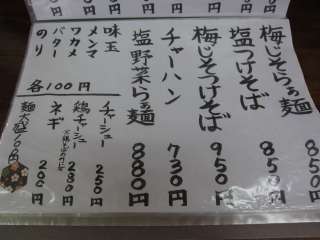 梅じそらぁ麺 850円
塩つけそば 850円
梅じそつけそば 950円
チャーハン 730円
塩野菜らぁ麺 880円
味玉
メンマ
ワカメ
バター
のり
各100円
チャーシュー 250円
鶏チャーシュー 280円
ネギ 200円
麺大盛100円